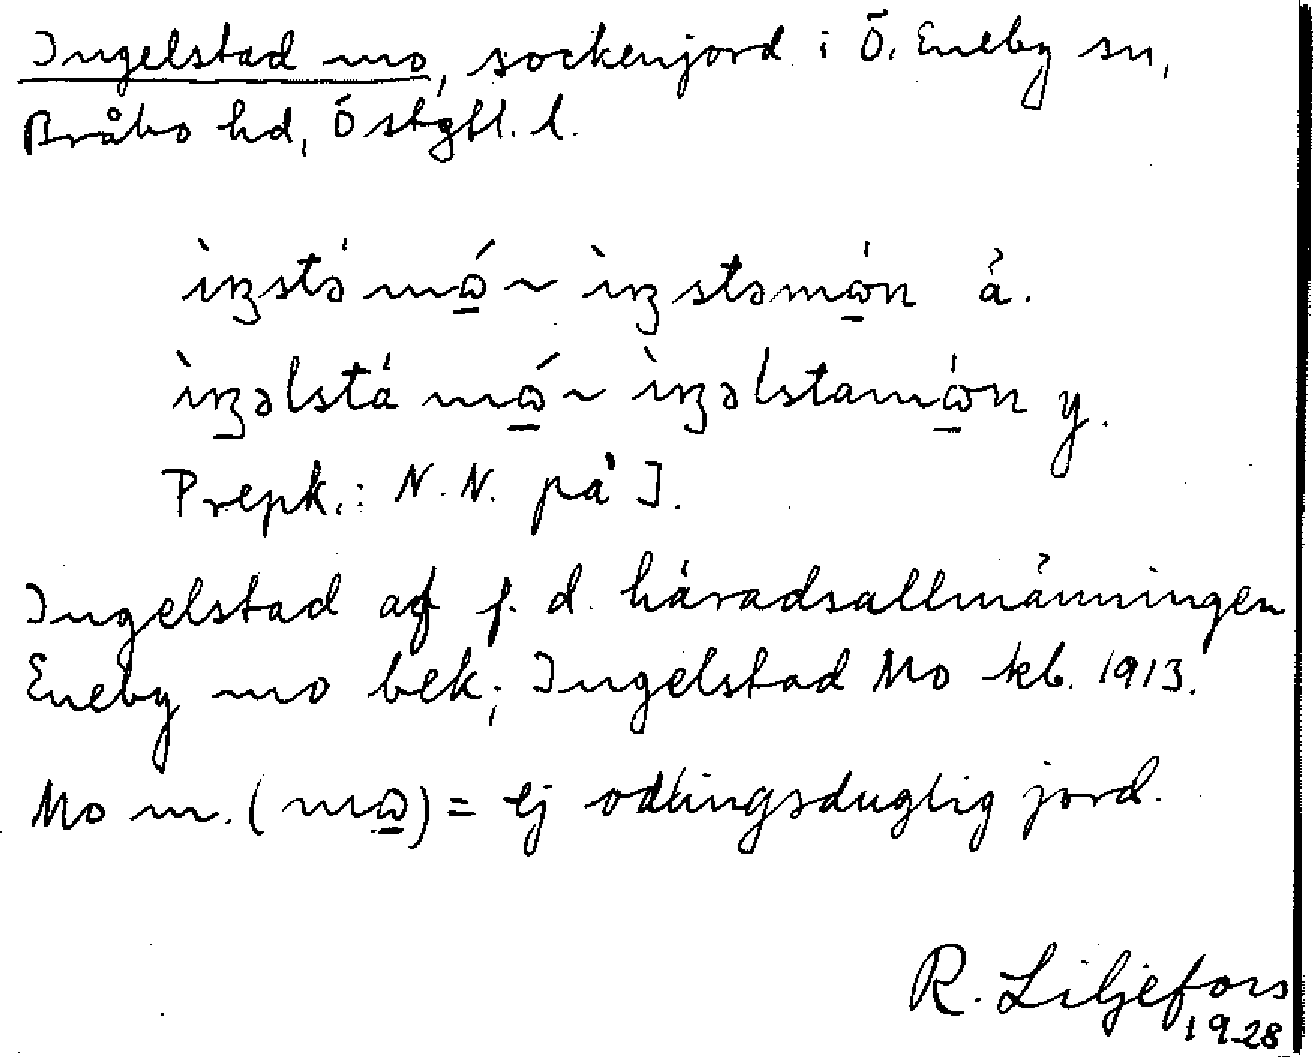 Ingelstad mo, sockenjord i Ö. Eneby sn,
Bråbo hd, Östgtl. l.
ìŋstə́ mɷ́ ~ ìŋstəmɷ́n ä.
ìŋəlstá mɷ́ ~ ìŋəlstamɷ́n y.
Prepk.: N.N. på I.
Ingelstad af f. d. häradsallmänningen
Eneby mo bek; Ingelstad Mo kb. 1913.
Mo m. (mɷ) = ej odlingsduglig jord.
R. Liljefors
1928